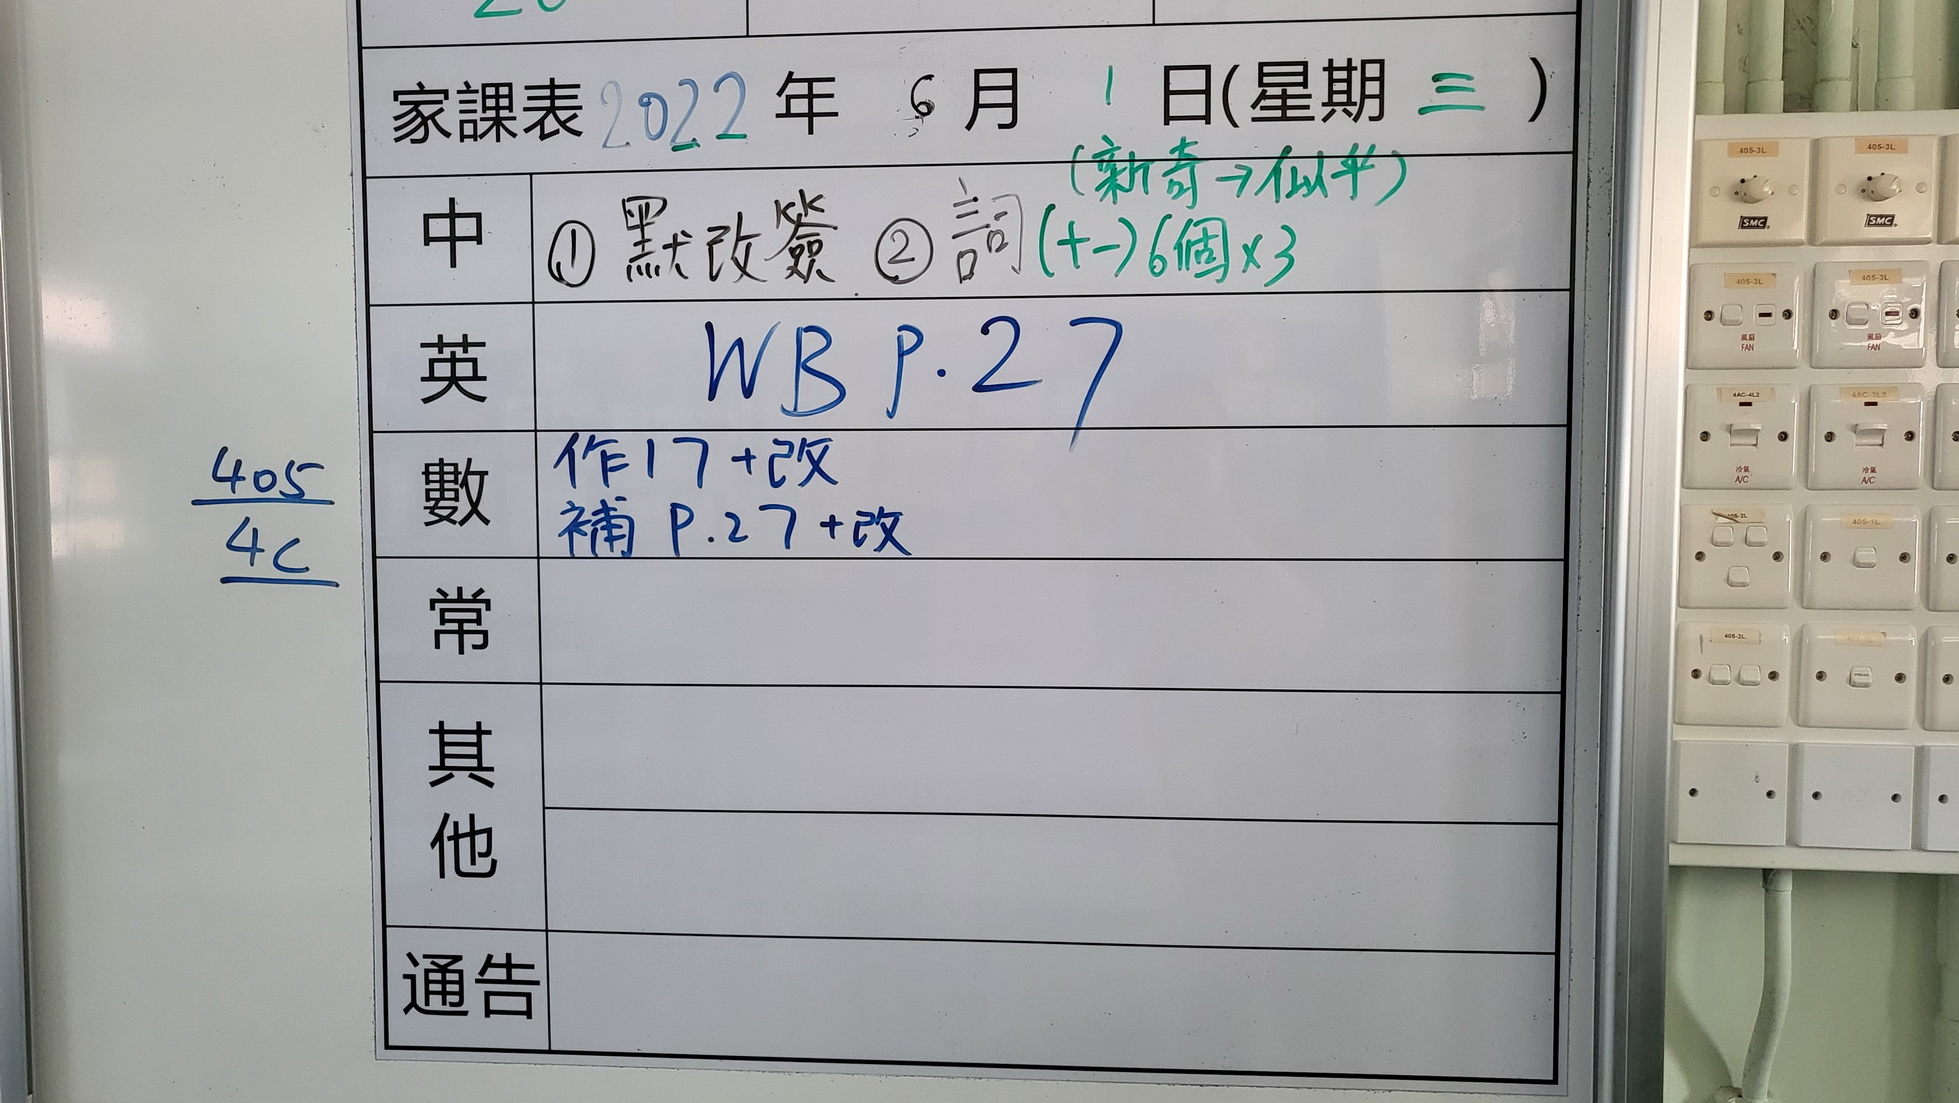 20
家課表 2022 年 6 月 1 日(星期 三 )
(新奇→似乎)
中 ① 默改簽 ② 詞(十一)6個×3
英 WB P.27
數 作17+改
補 P.27+改
常
其他
通告
405
4C
405-3L 405-3L
SMC SMC
405-3L 405-3L
風扇 風扇
FAN FAN
4AC-4L2 4AC-3L2
冷氣 冷氣
A/C A/C
405-2L 405-1L
405-2L